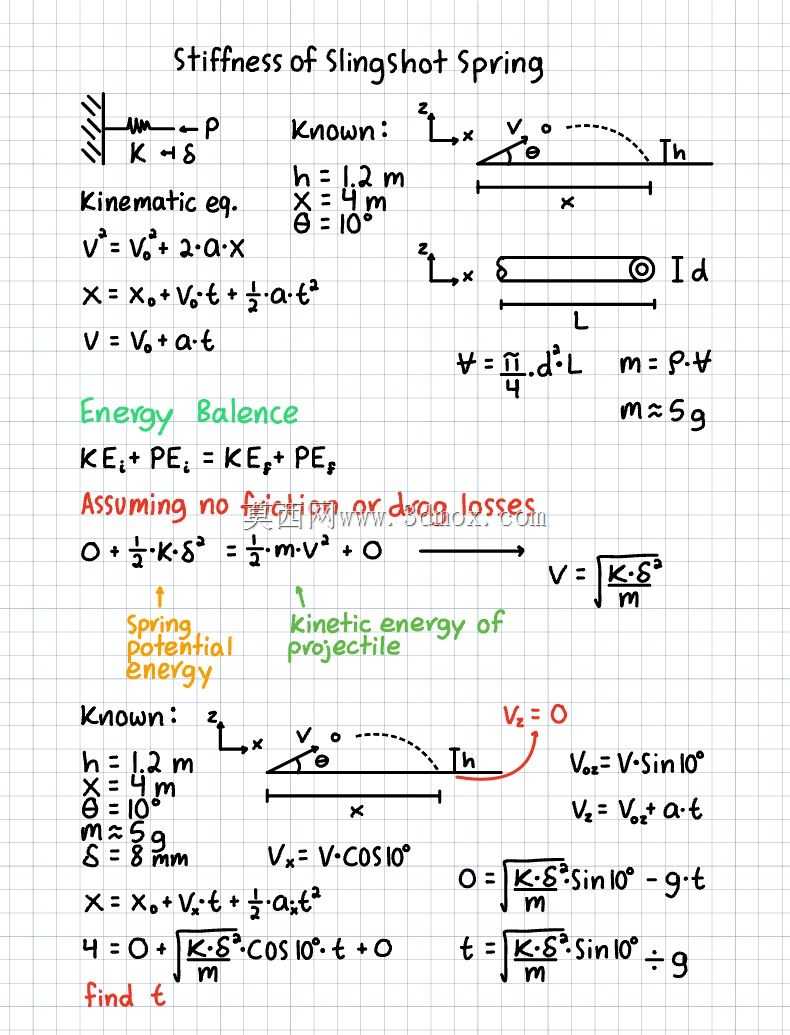 Stiffness of Slingshot Spring
P
K δ
Known:
h = 1.2 m
x = 4 m
θ = 10°
z
x
V
θ
h
x
Kinematic eq.
V² = V₀² + 2·a·x
x = x₀ + V₀·t + 1/2·a·t²
V = V₀ + a·t
z
x
δ
d
L
V = π/4 · d²· L
m = ρ·V
m ≈ 5g
Energy Balence
KEᵢ + PEᵢ = KE_f + PE_f
Assuming no friction or drag losses
莫西网www.3dmox.com
0 + 1/2·K·δ² = 1/2·m·V² + 0
V = √(K·δ²/m)
Spring
potential
energy
Kinetic energy of
projectile
Known:
h = 1.2 m
x = 4 m
θ = 10°
m ≈ 5g
δ = 8 mm
z
x
V
θ
h
x
V_z = 0
V₀z = V·Sin10°
V_z = V₀z + a·t
Vₓ = V·COS10°
x = x₀ + Vₓ·t + 1/2·aₓt²
4 = 0 + √(K·δ²/m)·COS10°·t + 0
find t
0 = √(K·δ²/m)·Sin10° - g·t
t = √(K·δ²/m)·Sin10° ÷ g